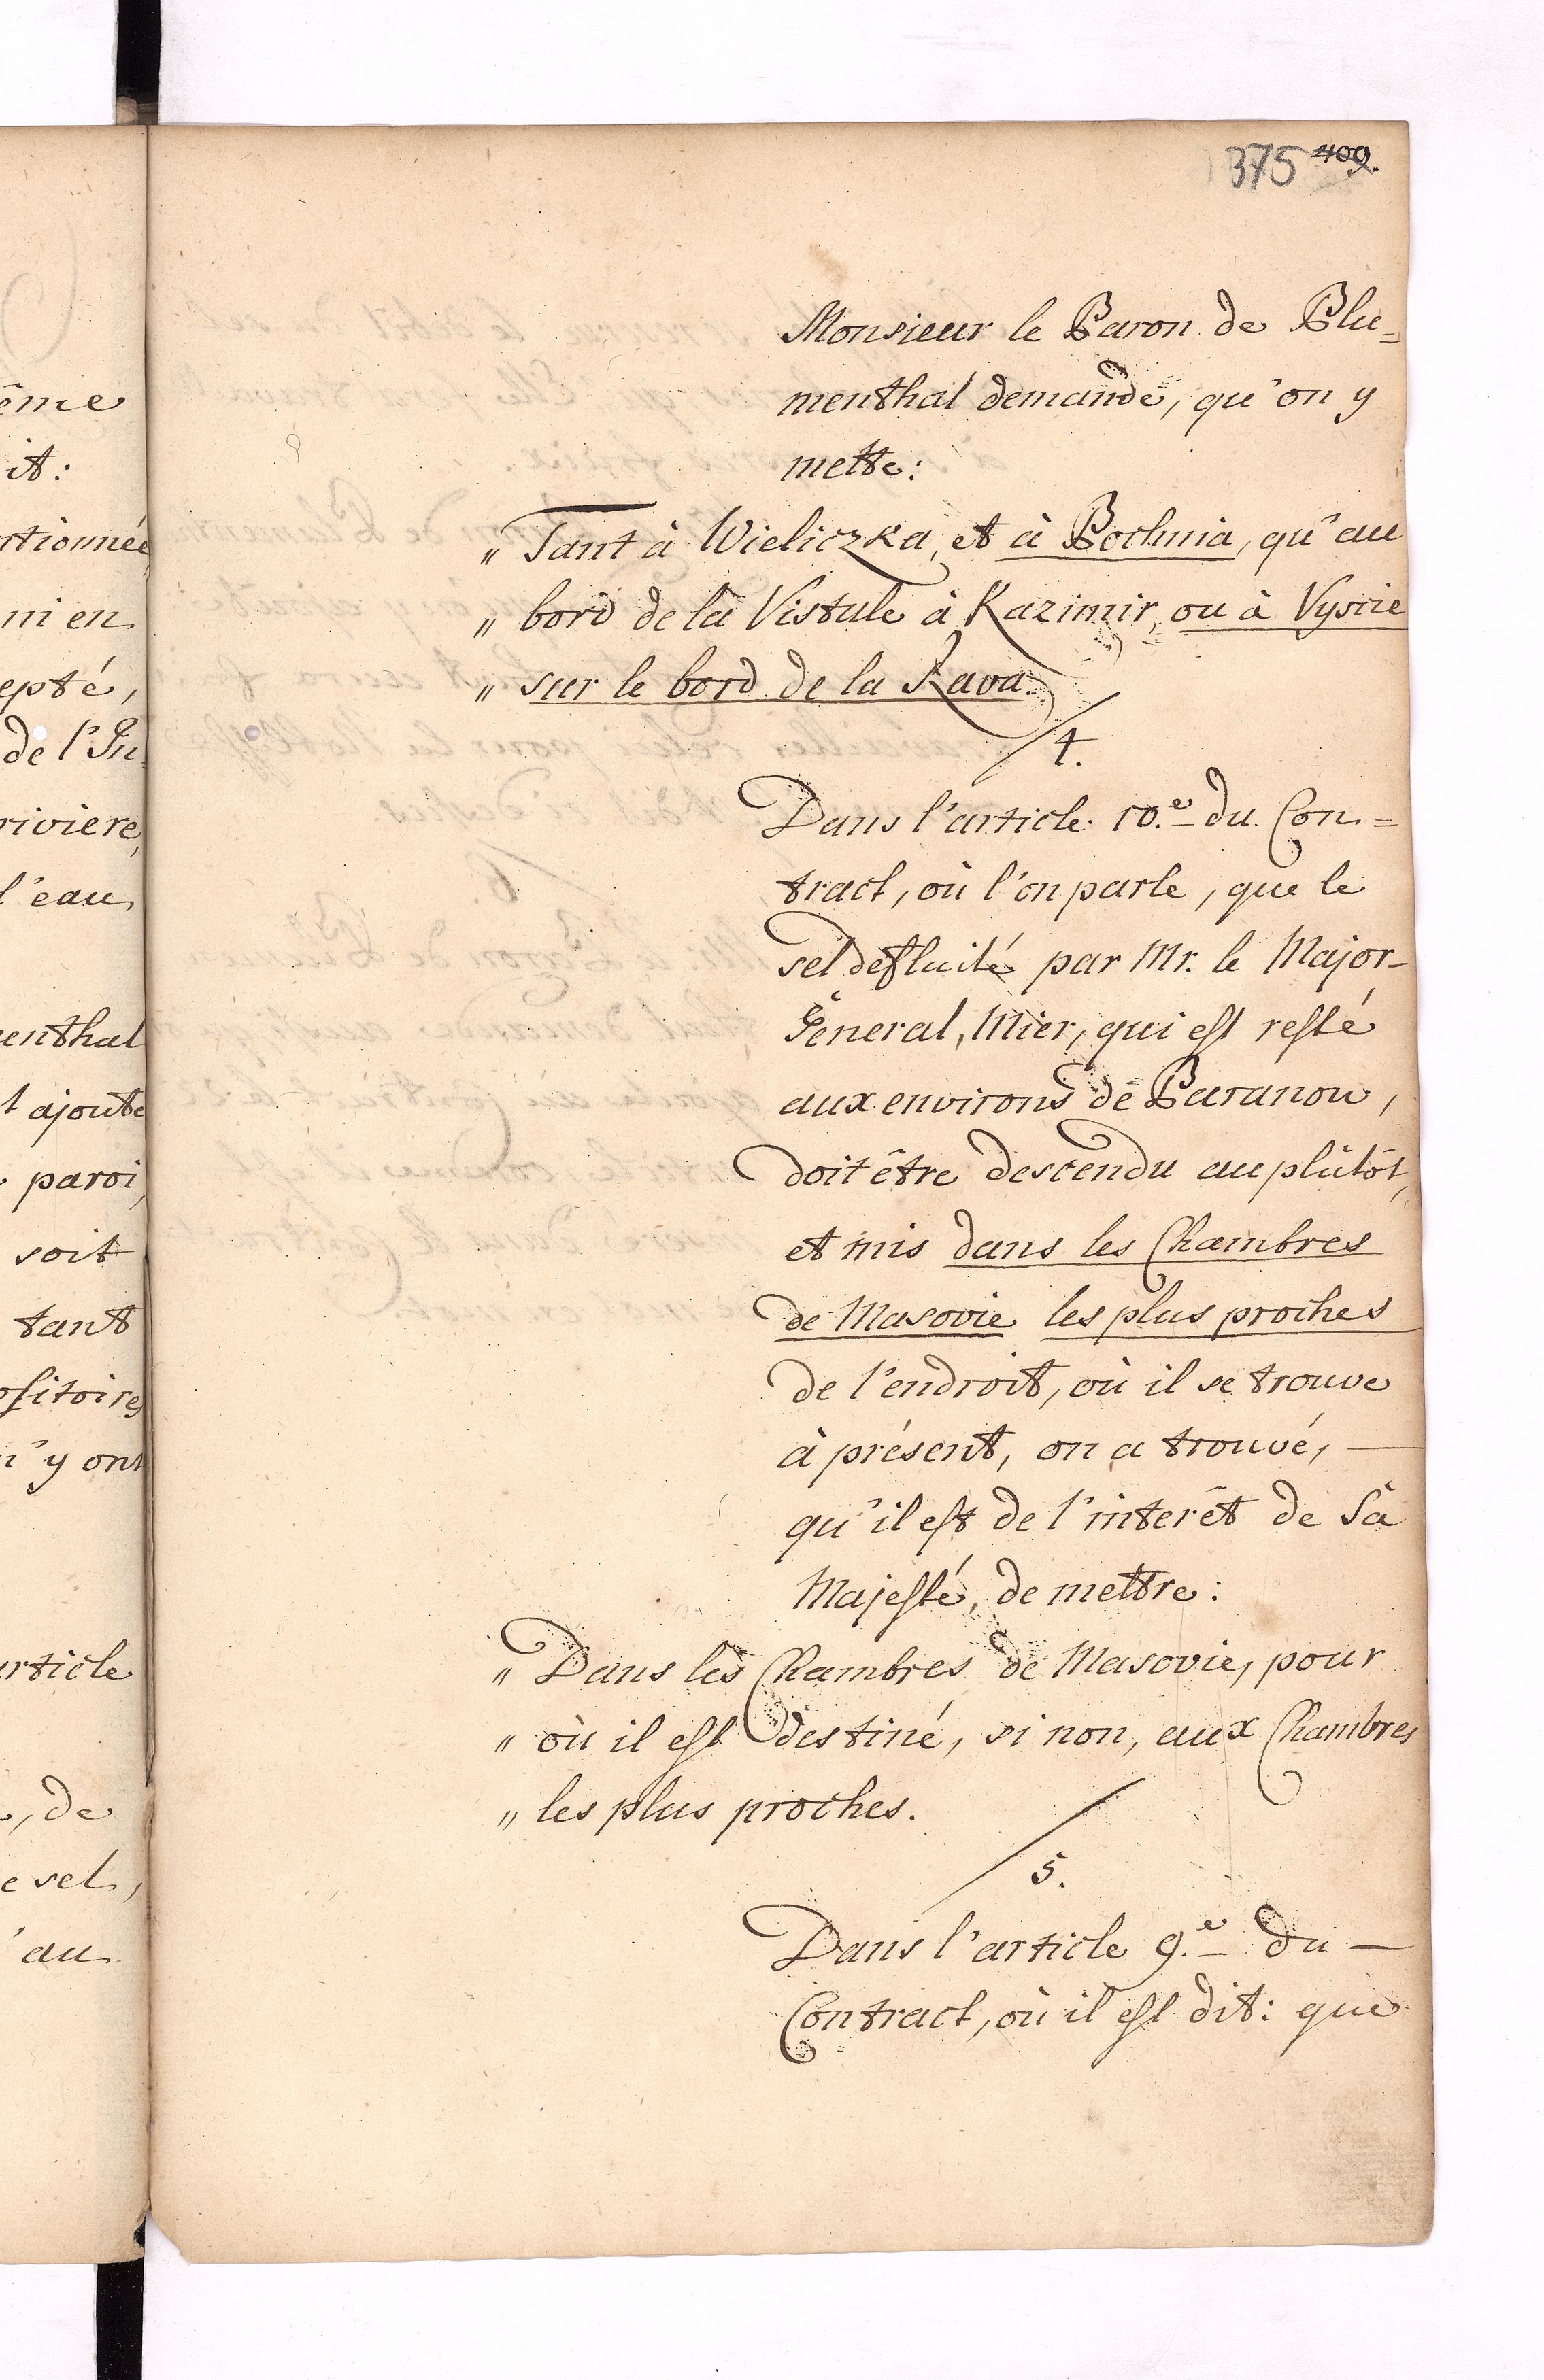 375 409.
Monsieur le Baron de Blu=
menthal demande, qu'on y
mette:
„ Tant à Wieliczka, et à Bochnia, qu'au
„ bord de la Vistule à Kazimir, ou à Vyscie
„ sur le bord de la Rava.
4.
Dans l'article 10.e du Con=
tract, où l'on parle, que le
sel defluité par Mr. le Major-
General, Mier, qui est resté
aux environs de Baranow,
doit être descendu au plûtôt,
et mis dans les Chambres
de Masovie les plus proches
de l'endroit, où il se trouve
à présent, on a trouvé, —
qu'il est de l'interêt de Sa
Majesté, de mettre:
„ Dans les Chambres de Masovie, pour
„ où il est destiné, si non, aux Chambres
„ les plus proches.
5.
Dans l'article 9.e du —
Contract, où il est dit: que
ême
it:
rtionnée
ni en
epté,
de l'In
riviere,
l'eau
enthal
t ajoute
paroi,
soit
tant
ositoires
n'y ont
article
, de
e sel,
'au